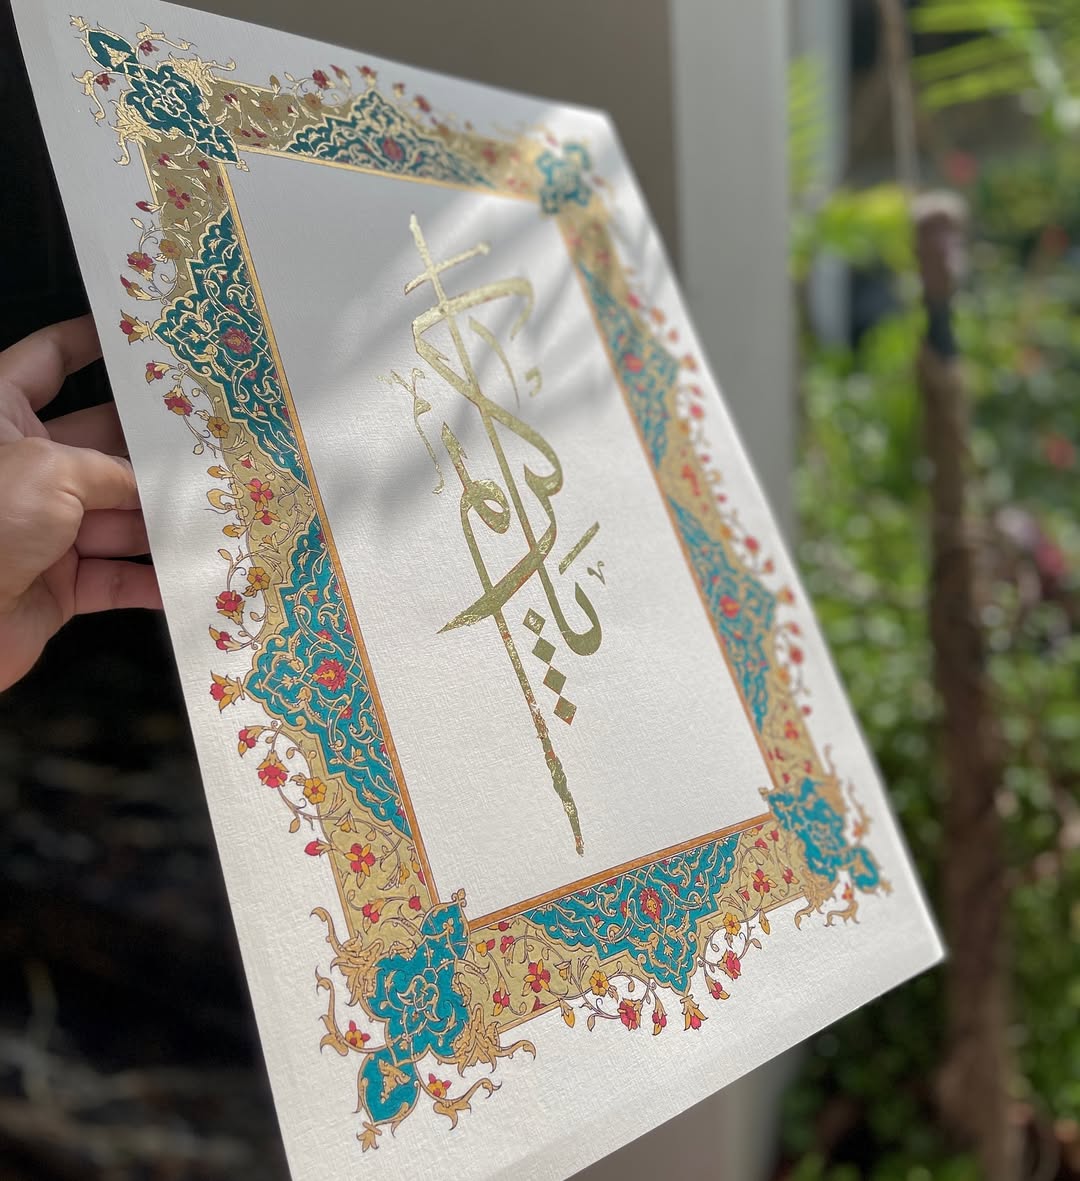 يا كريم